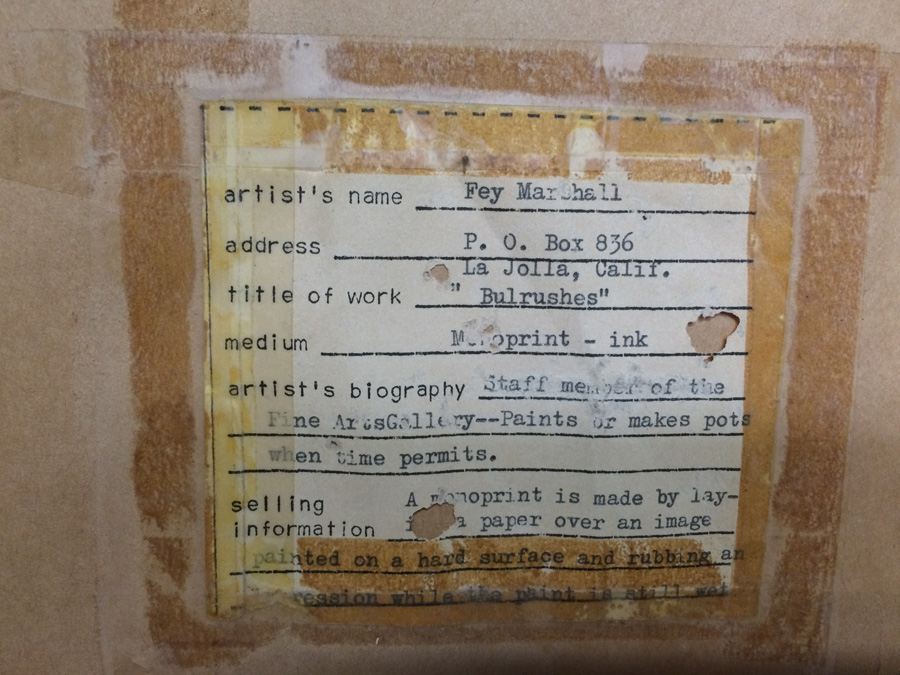 artist's name Fey Marshall
address P. O. Box 836
La Jolla, Calif.
title of work " Bulrushes"
medium Monoprint - ink
artist's biography Staff member of the
Fine ArtsGallery--Paints or makes pots
when time permits.
selling A monoprint is made by lay-
information a paper over an image
painted on a hard surface and rubbing an
while the paint is still wet